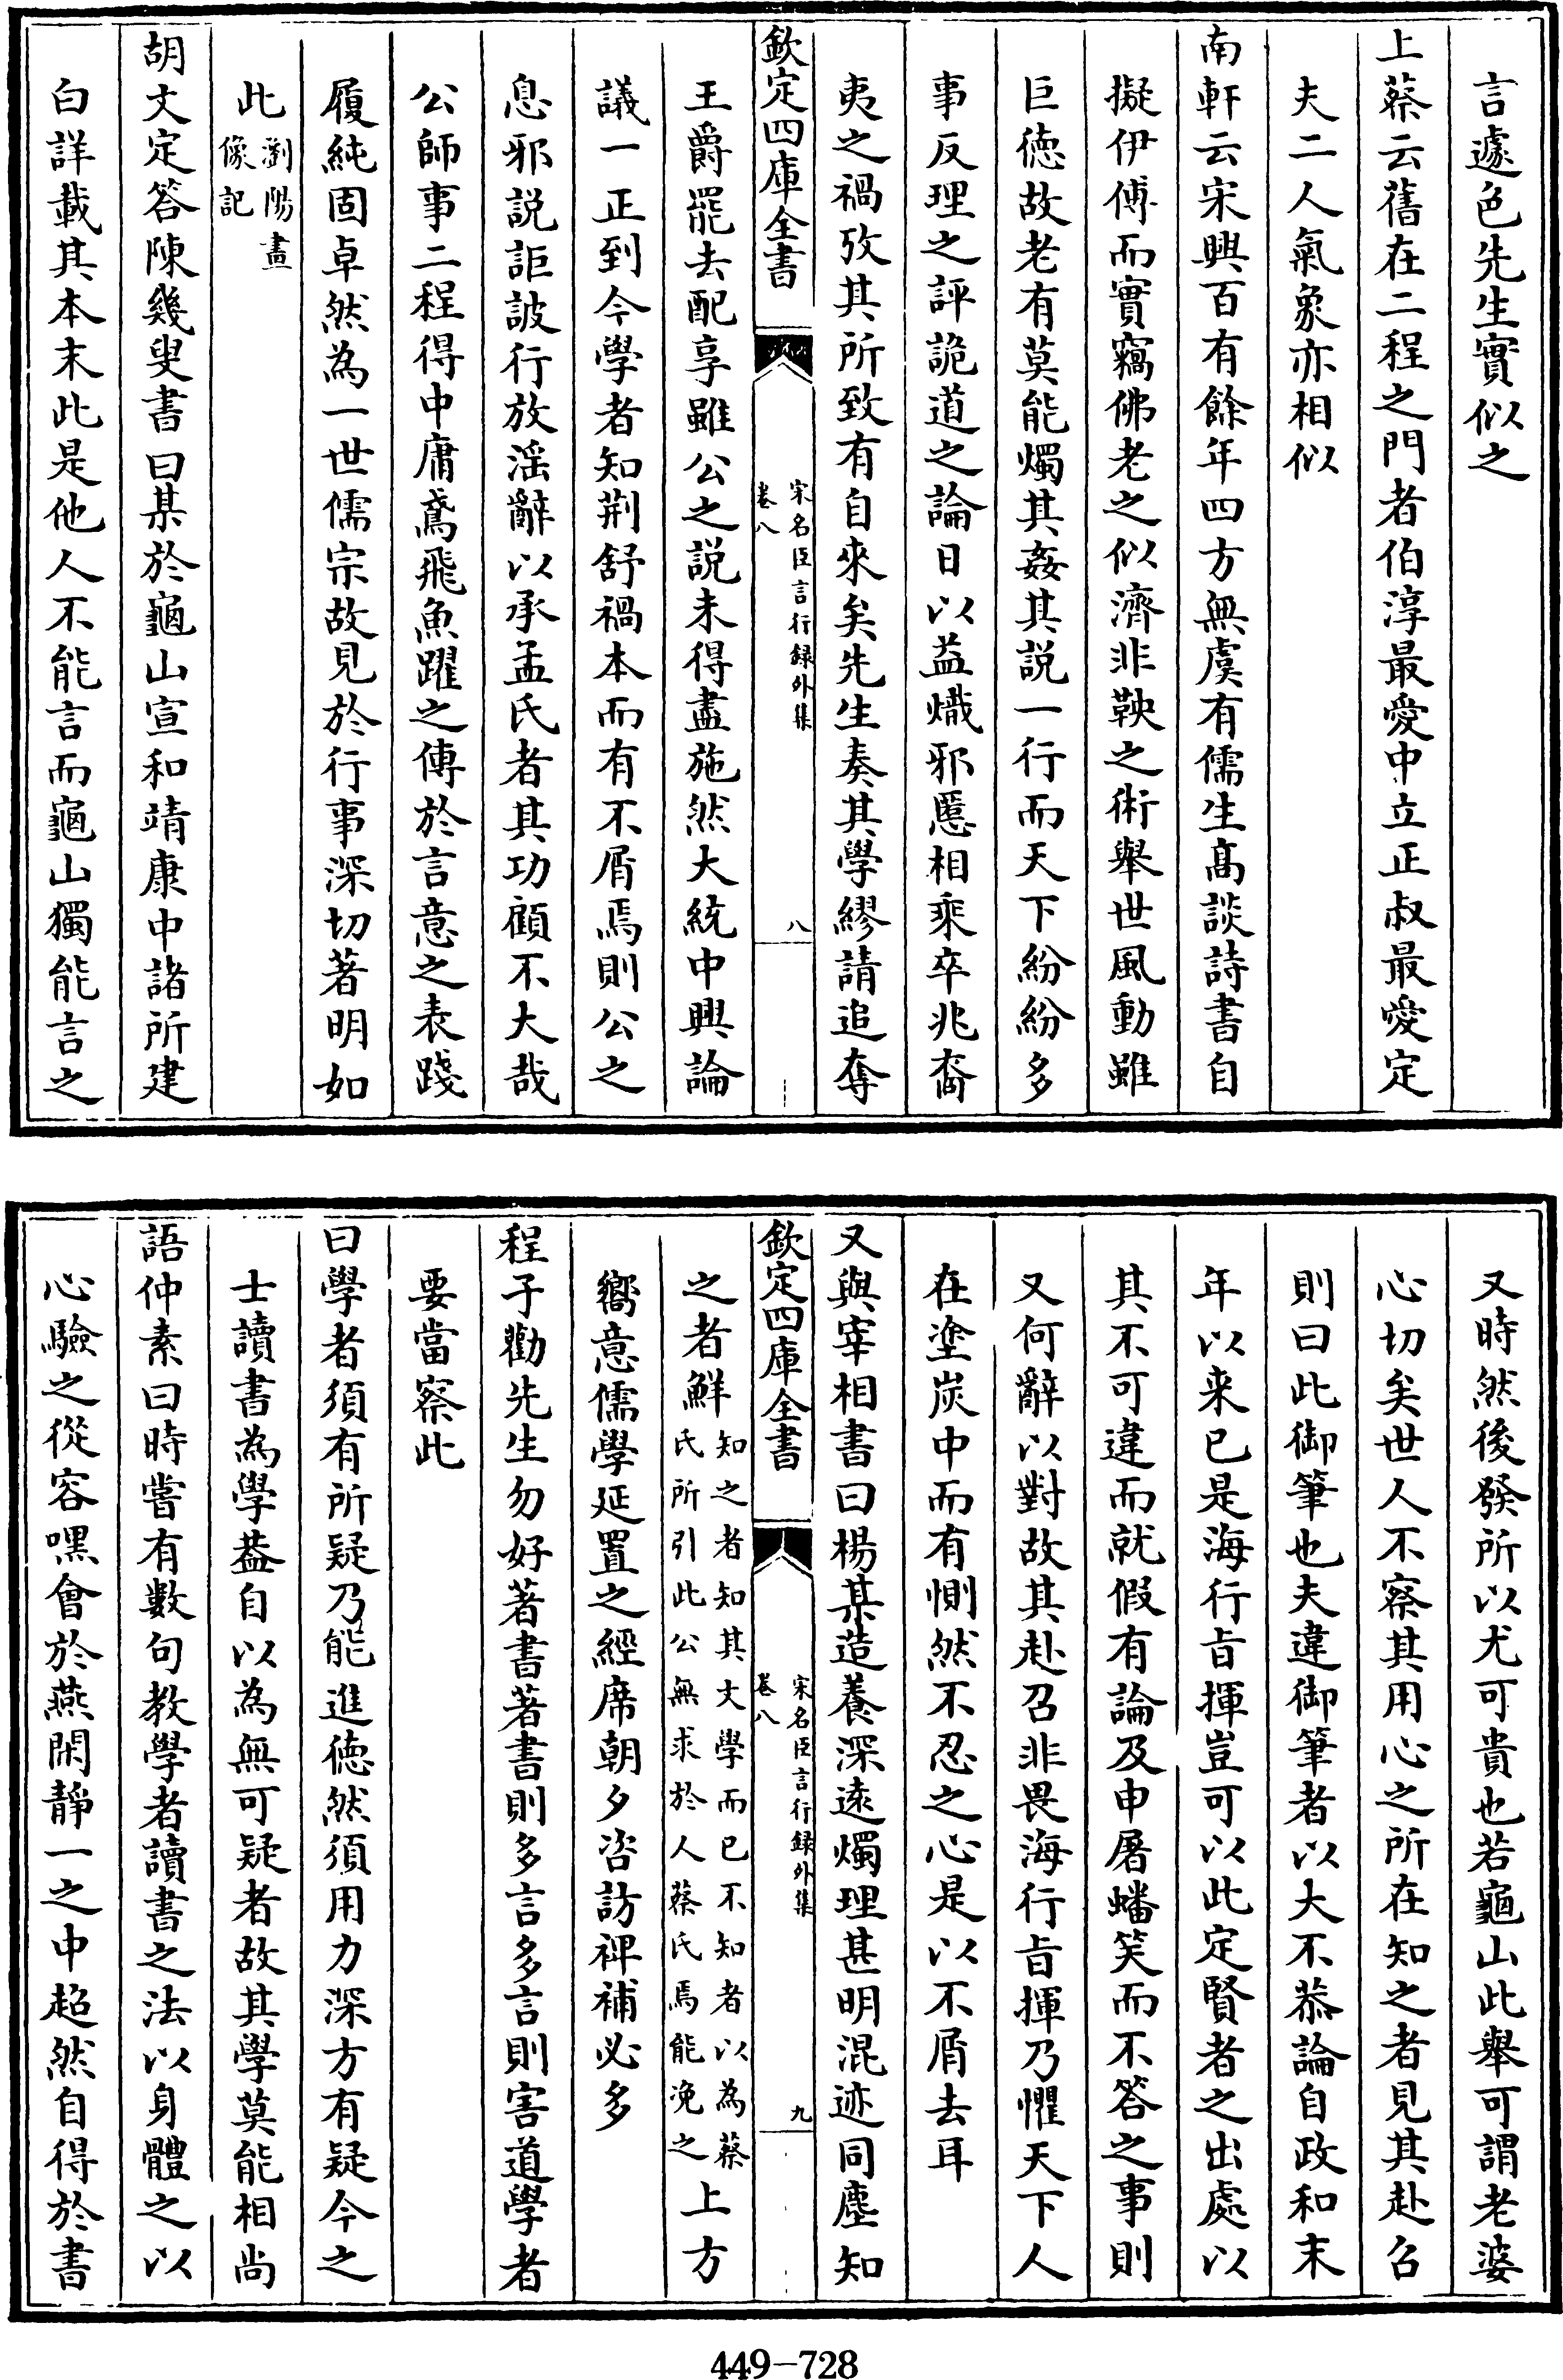 言遽色先生實似之
上蔡云舊在二程之門者伯淳最愛中立正叔最愛定
夫二人氣象亦相似
南軒云宋興百有餘年四方無虞有儒生髙談詩書自
擬伊傅而實竊佛老之似濟非鞅之術舉世風動雖
巨徳故老有莫能燭其姦其説一行而天下紛紛多
事反理之評詭道之論日以益熾邪慝相乘卒兆裔
夷之禍攷其所致有自來矣先生奏其學繆請追奪
欽定四庫全書
宋名臣言行録外集
卷八
八
王爵罷去配享雖公之説未得盡施然大統中興論
議一正到今學者知荆舒禍本而有不屑焉則公之
息邪説詎詖行放滛辭以承孟氏者其功顧不大哉
公師事二程得中庸鳶飛魚躍之傳於言意之表踐
履純固卓然為一世儒宗故見於行事深切著明如
此瀏陽畫
像記
胡文定答陳幾叟書曰某於龜山宣和靖康中諸所建
白詳載其本末此是他人不能言而龜山獨能言之
又時然後發所以尤可貴也若龜山此舉可謂老婆
心切矣世人不察其用心之所在知之者見其赴召
則曰此御筆也夫違御筆者以大不恭論自政和末
年以来已是海行旨揮豈可以此定賢者之出處以
其不可違而就假有論及申屠蟠笑而不答之事則
又何辭以對故其赴召非畏海行旨揮乃懼天下人
在塗炭中而有惻然不忍之心是以不屑去耳
又與宰相書曰楊某造養深逺燭理甚明混迹同塵知
欽定四庫全書
宋名臣言行録外集
卷八
九
之者鮮知之者知其文學而已不知者以為蔡
氏所引此公無求於人蔡氏焉能浼之上方
嚮意儒學延置之經席朝夕咨訪禆補必多
程子勸先生勿好著書著書則多言多言則害道學者
要當察此
曰學者須有所疑乃能進徳然須用力深方有疑今之
士讀書為學葢自以為無可疑者故其學莫能相尚
語仲素曰時嘗有數句教學者讀書之法以身體之以
心驗之從容嘿會於燕閑靜一之中超然自得於書
449-728